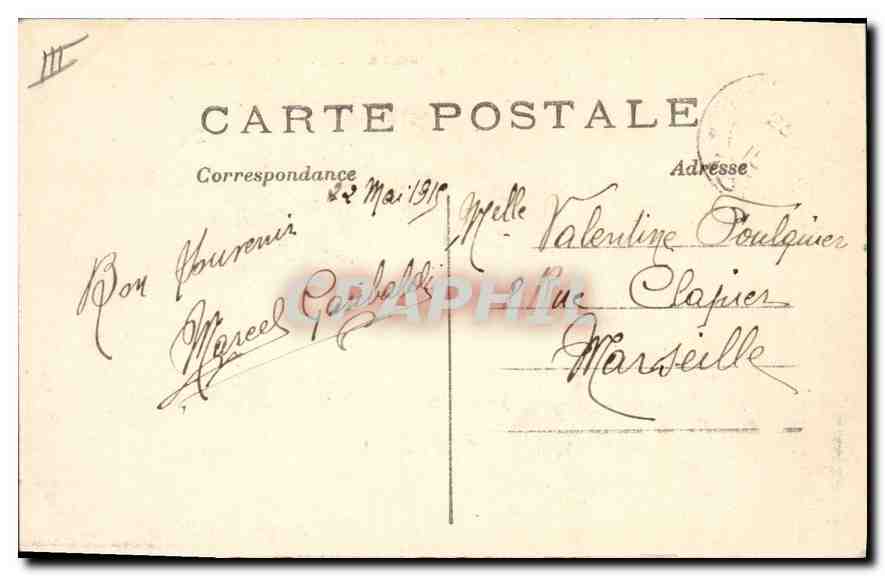 III
CARTE POSTALE
Correspondance
Adresse
22 Mai 1915
Bon Souvenir
Marcel Garibaldi
Melle Valentine Foulquier
2 Rue Clapier
Marseille
CPAPHIL